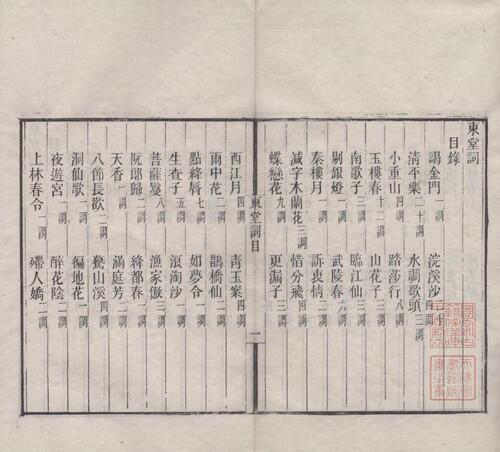 東堂詞
目錄
謁金門一調 浣溪沙二十四調
清平樂二十調 水調歌頭三調
小重山四調 踏莎行八調
玉樓春十二調 山花子三調
南歌子三調 臨江仙三調
剔銀燈一調 武陵春六調
秦樓月一調 訴衷情二調
減字木蘭花三調 惜分飛四調
蝶戀花九調 更漏子三調
東堂詞目 一
西江月四調 青玉案四調
雨中花二調 鵲橋仙一調
點絳脣七調 如夢令二調
生查子五調 浪淘沙一調
菩薩蠻八調 漁家傲三調
阮郎歸二調 絳都春一調
天香一調 滿庭芳二調
八節長歡二調 驀山溪四調
洞仙歌一調 徧地花一調
夜遊宮一調 醉花陰二調
上林春令一調 殢人嬌二調